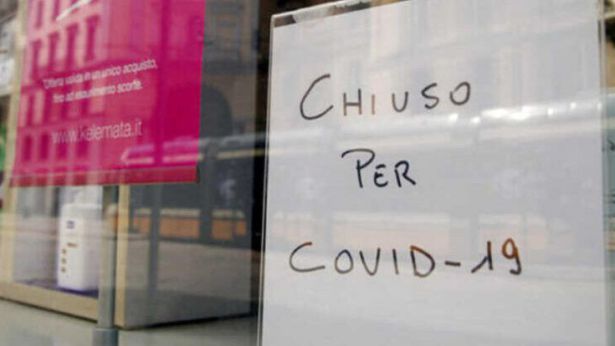 *Offerta valida in un unico acquisto,
fino ad esaurimento scorte.
www.kelemata.it
CHIUSO
PER
COVID-19